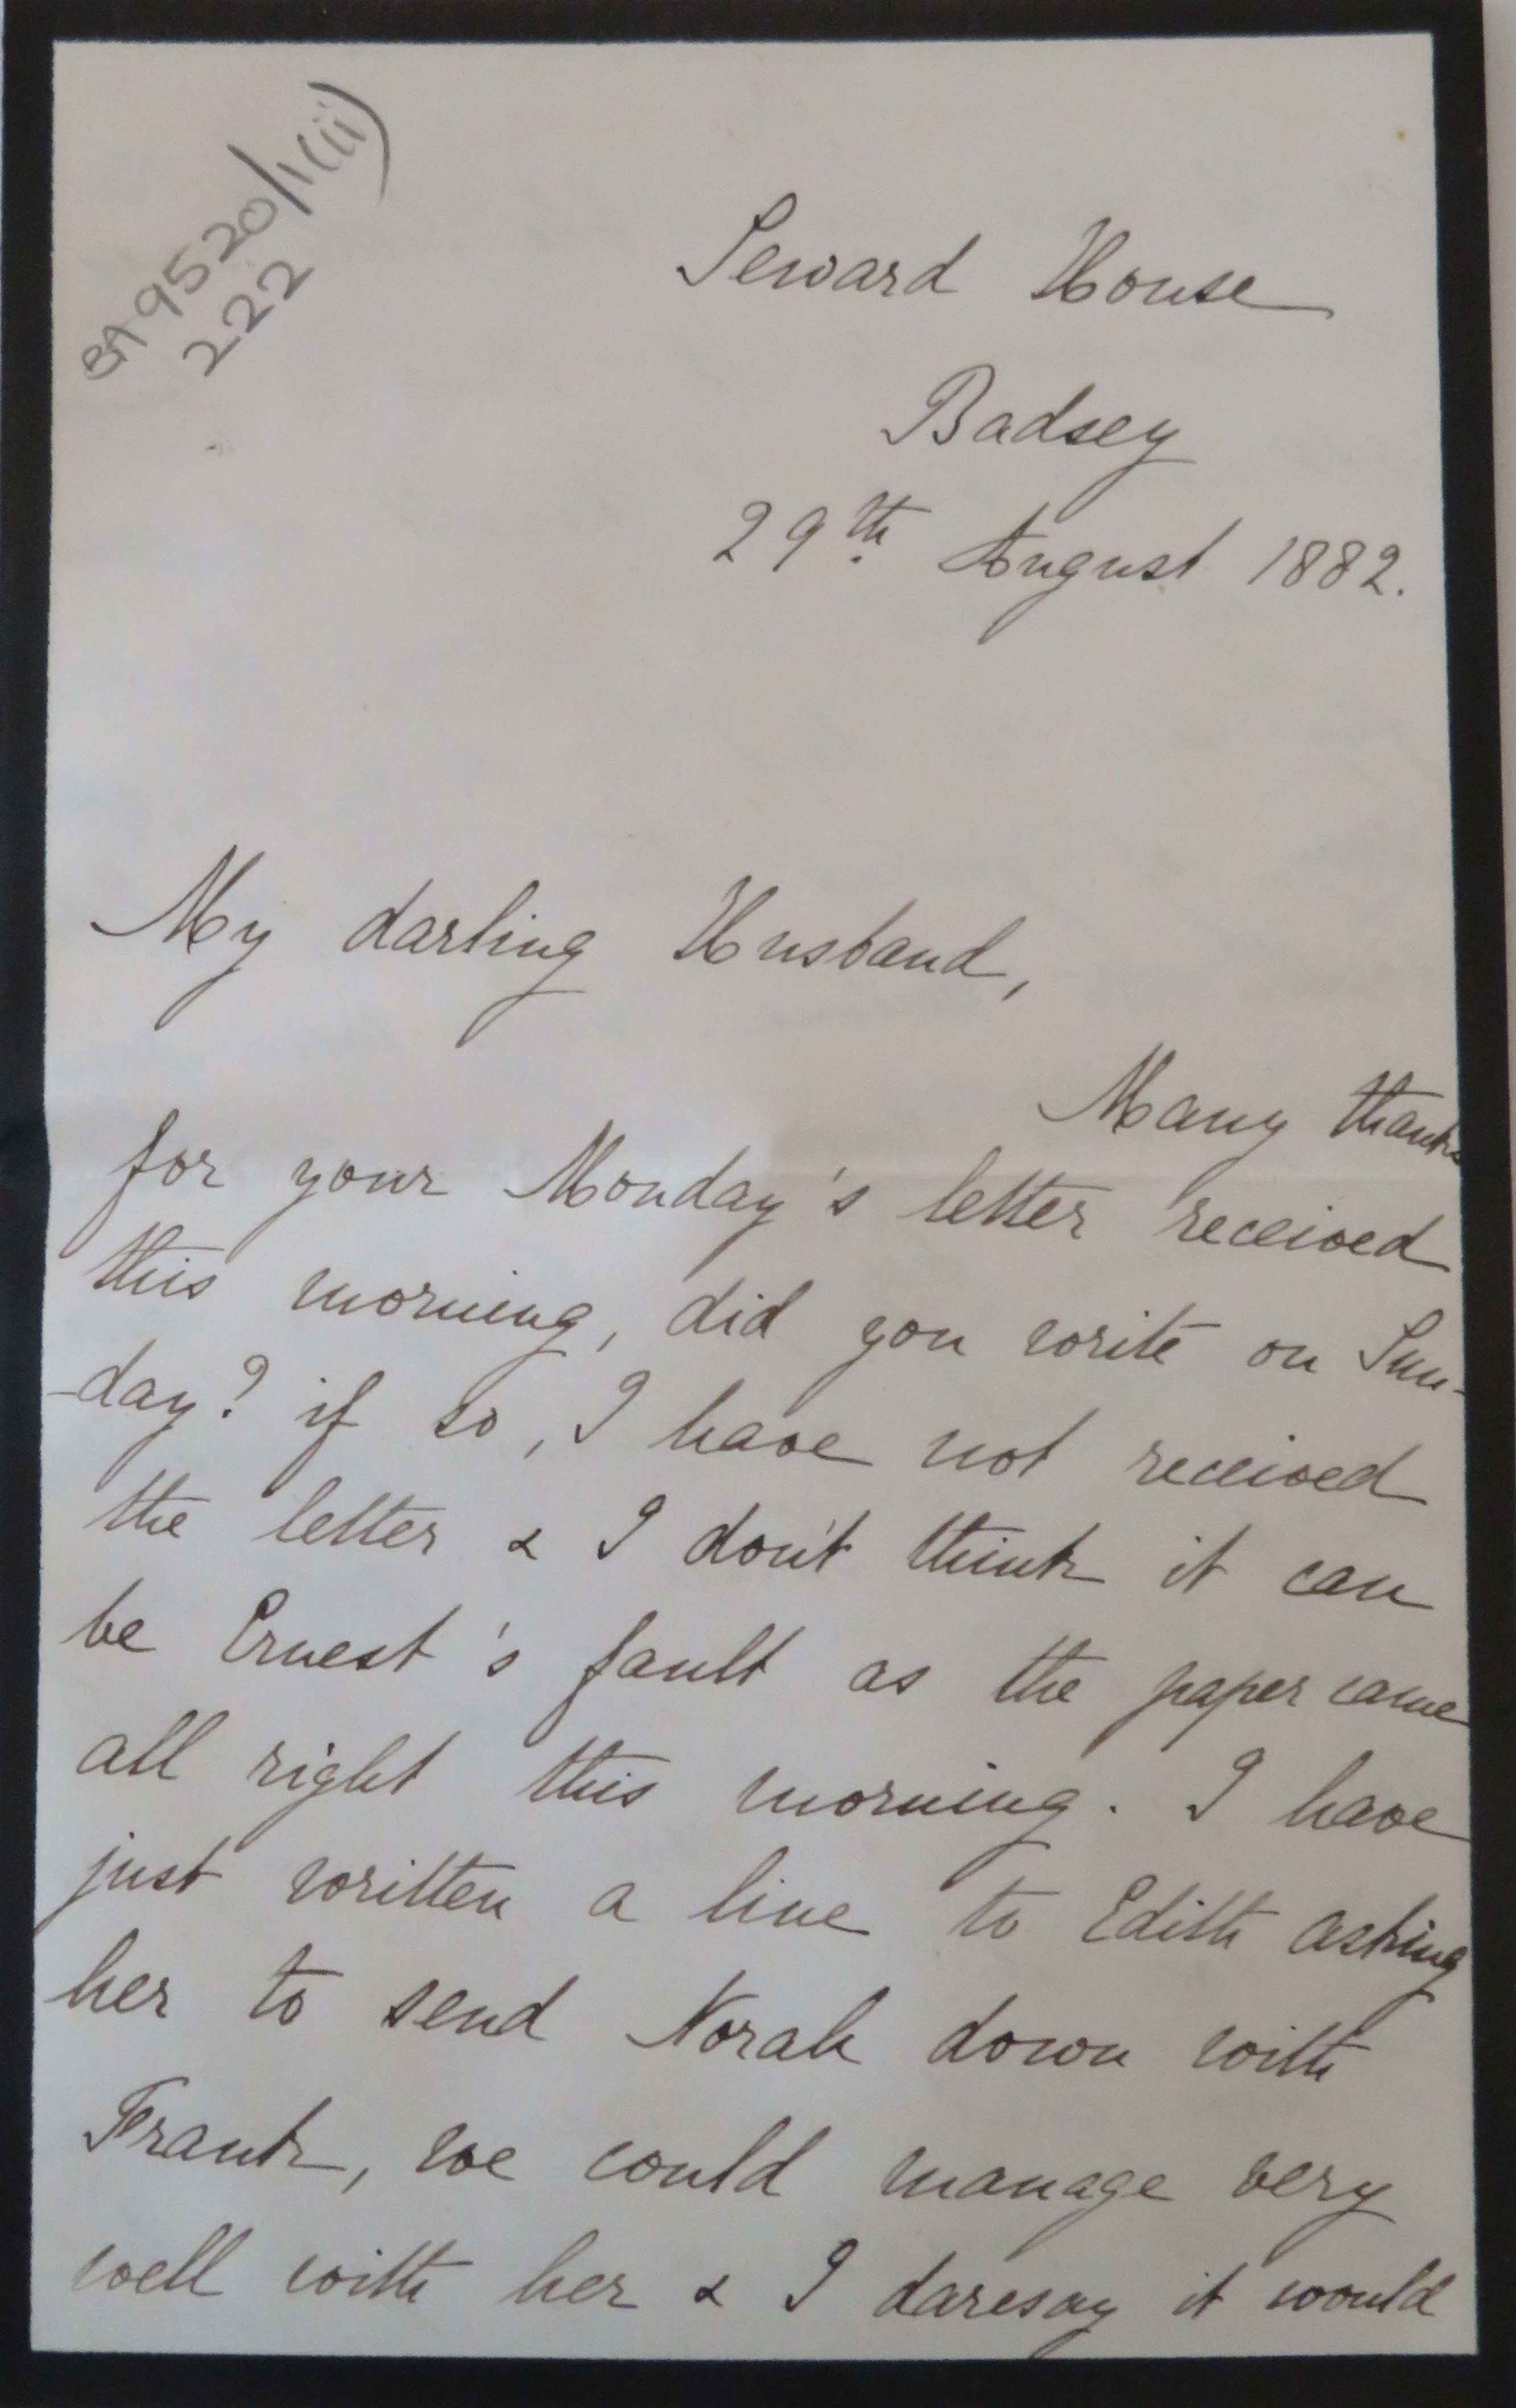 BA9520/1(ii)
222
Seward House
Badsey
29th August 1882.
My darling Husband,
Many thanks
for your Monday's letter received
this morning, did you write on Sun-
-day? if so, I have not received
the letter & I don't think it can
be Ernest's fault as the paper came
all right this morning. I have
just written a line to Edith asking
her to send Norah down with
Frank, we could manage very
well with her & I daresay it would